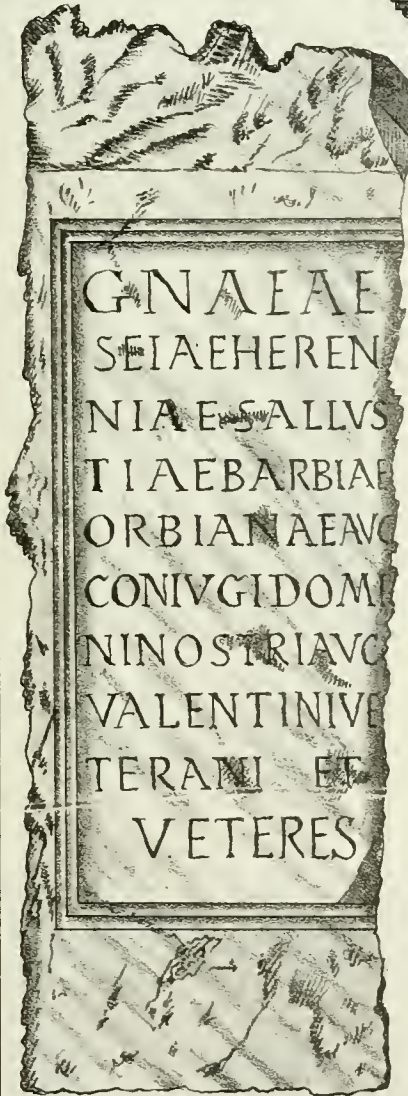 GNAEAE
SEIAEHEREN
NIAESALLVS
TIAEBARBIAE
ORBIANAEAVG
CONIVGIDOMI
NINOSTRIAVG
VALENTINIVE
TERANI ET
VETERES